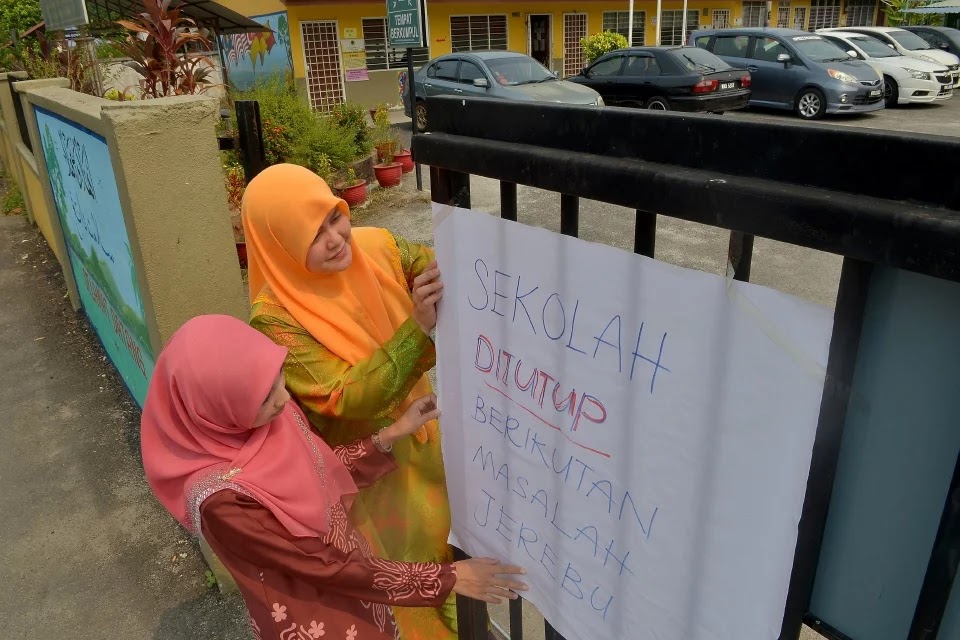 TEMPAT
BERKUMPUL
SEKOLAH
DITUTUP
BERIKUTAN
MASALAH
JEREBU